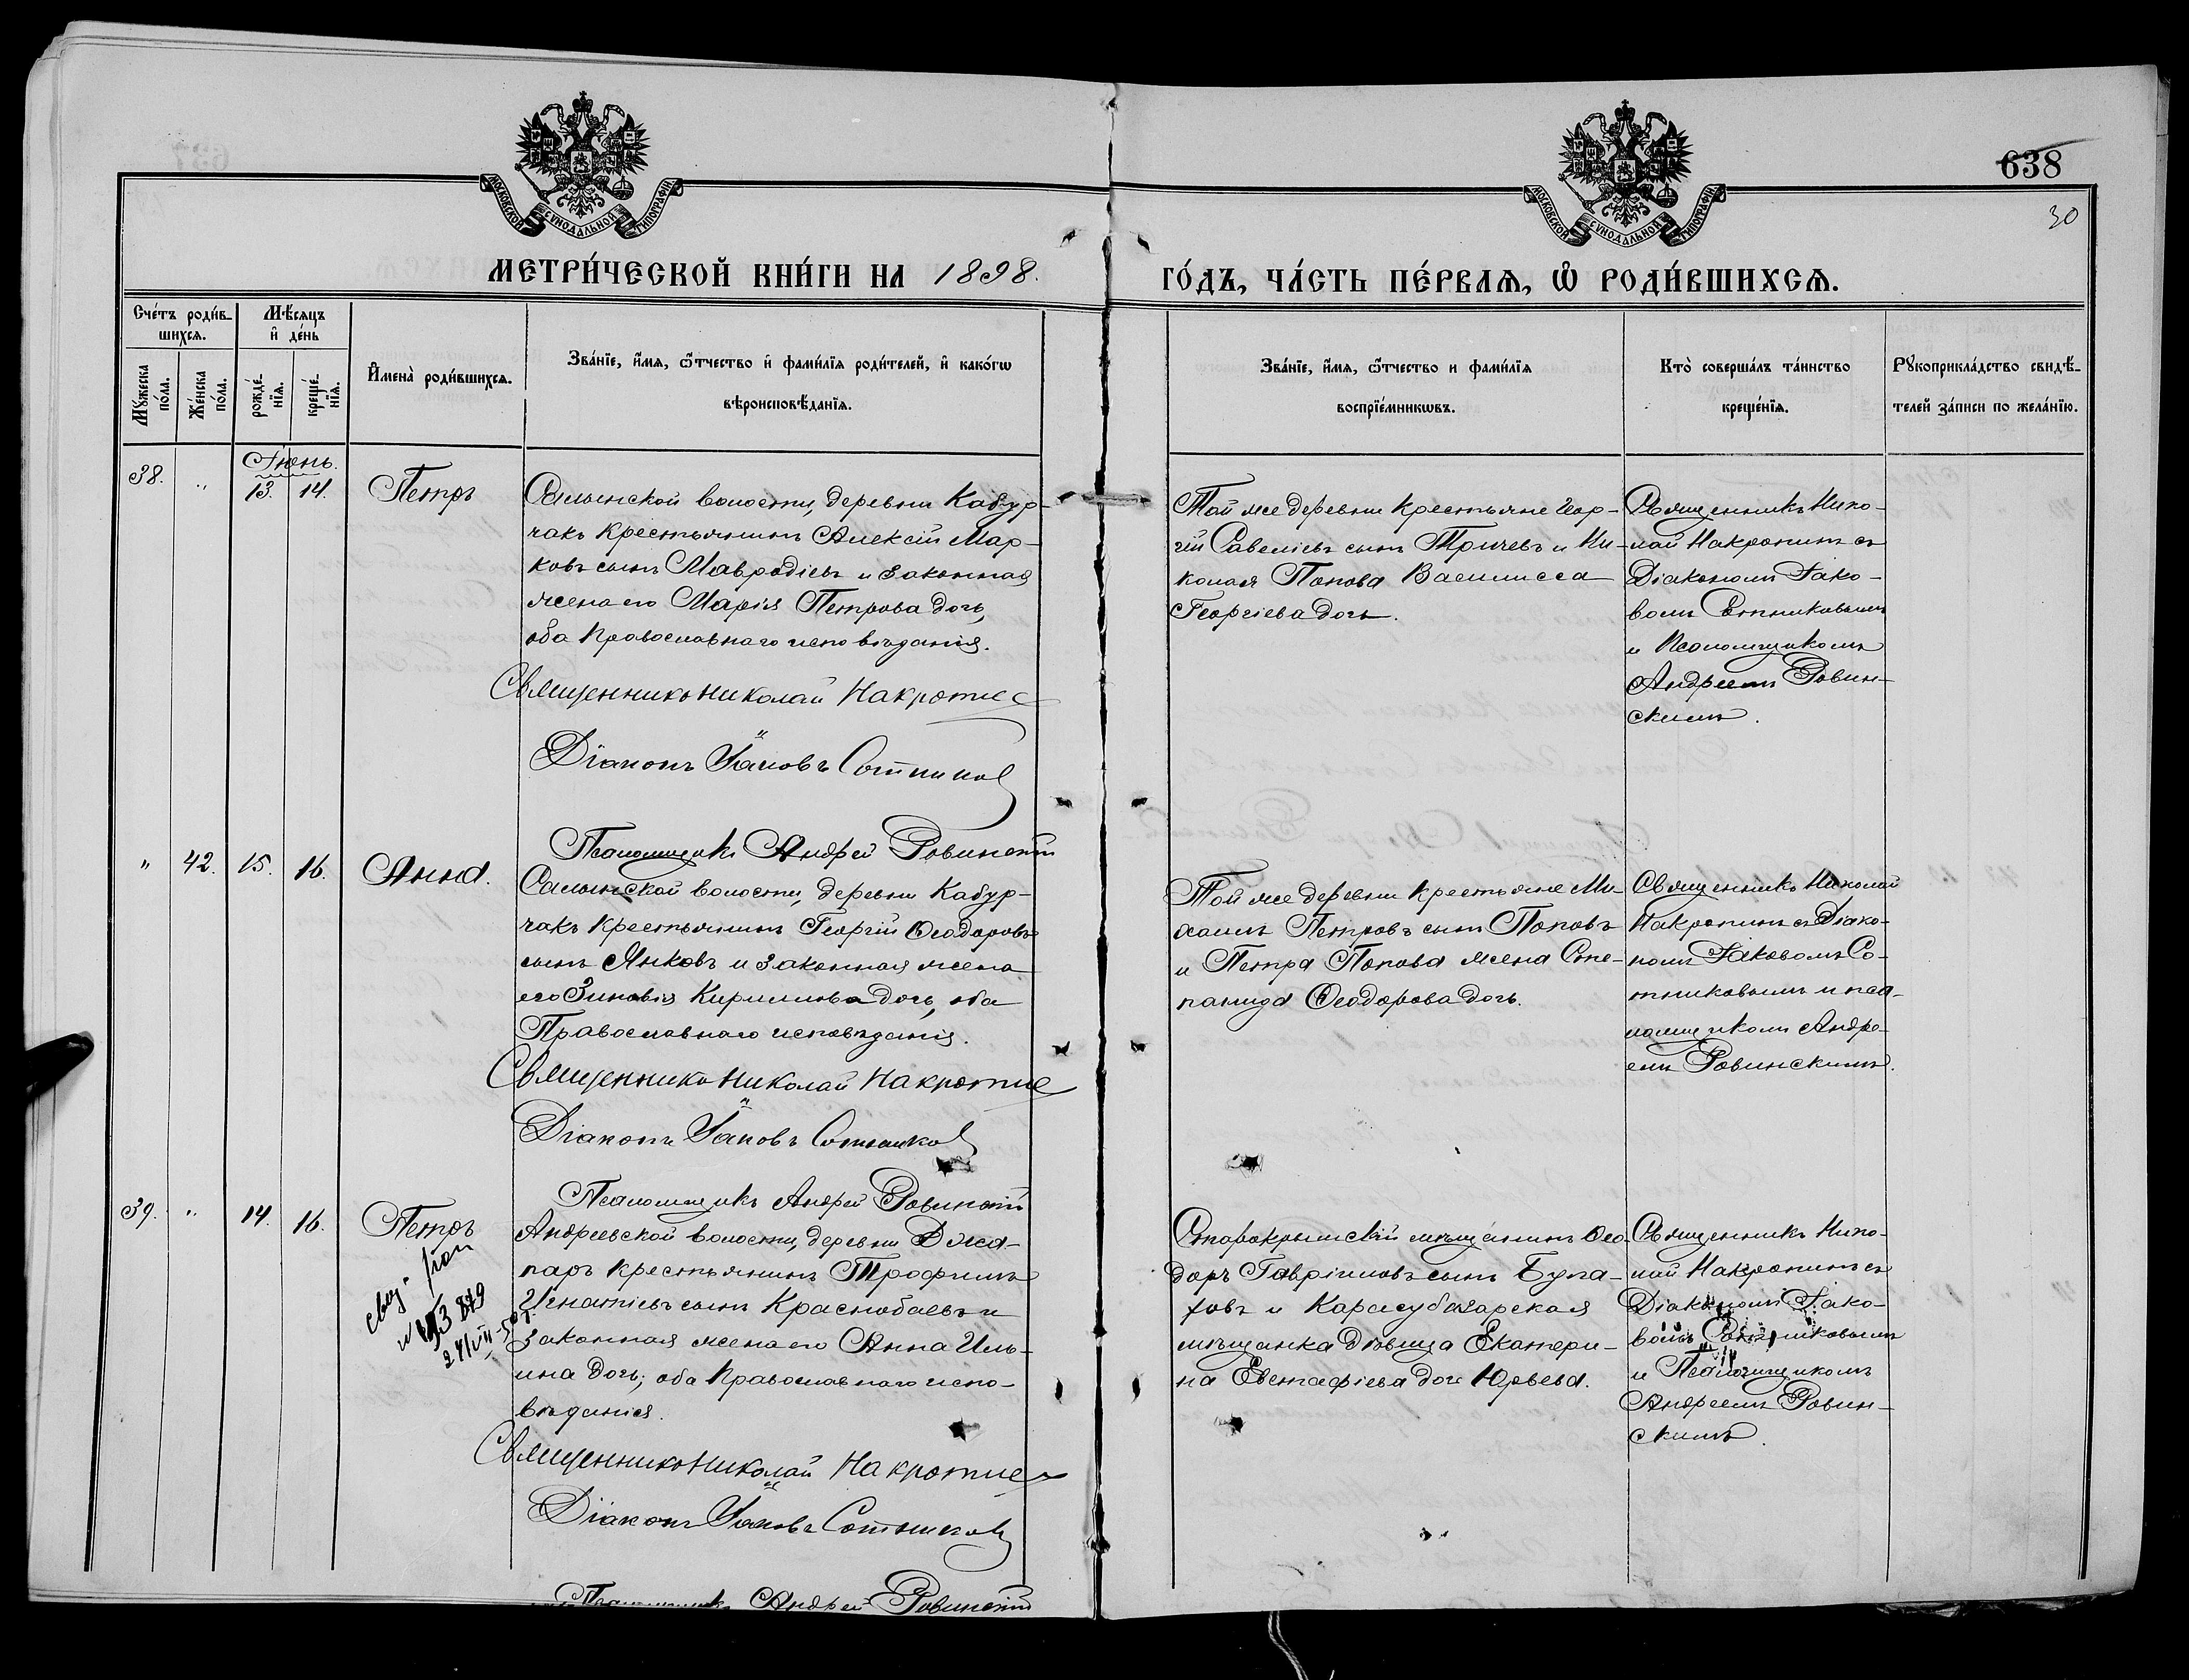 МОСКОВСКОЙ СѴНОДАЛЬНОЙ ТИПОГРАФІИ
МОСКОВСКОЙ СѴНОДАЛЬНОЙ ТИПОГРАФІИ
638
30
МЕТРИ́ЧЕСКОЙ КНИ́ГИ НА 1898.
ГО́ДЪ, ЧА́СТЬ ПЕ́РВАѦ, Ѡ҆ РОДИ́ВШИХСѦ.
Сче́тъ роди́в-
шихсѧ.
Мѣ́сѧцъ
и҆ де́нь
Мꙋ́жеска
по́ла.
Же́нска
по́ла.
рожде́-
нїѧ.
креще́-
нїѧ.
И҆мена̀ роди́вшихсѧ.
Зва́нїе, и҆́мѧ, ѻ҆́тчество и҆ фами́лїѧ роди́телей, и҆ како́гѡ
вѣроисповѣ́данїѧ.
Зва́нїе, и҆́мѧ, ѻ҆́тчество и фами́лїѧ
воспрїе́мникѡвъ.
Кто̀ соверша́лъ та́инство
креще́нїѧ.
Рꙋкоприкла́дство свидѣ́-
телей за́писи по жела́нїю.
Іюнь.
38. " 13. 14. Петръ
Салынской волости, деревни Кабур-
чакъ крестьянинъ Алексій Мар-
ковъ сынъ Мавродіевъ и законная
жена его Марія Петрова дочь,
оба Православнаго исповѣданія.
Священникъ Николай Накропин
Діаконъ Іаковъ Сотников
Псаломщикъ Андрей Ровинскій
Той же деревни крестьяне Геор-
гій Савеліевъ сынъ Тричевъ и Ни-
колая Попова Василисса
Георгіева дочь.
Священникъ Нико-
лай Накропинъ съ
Діакономъ Іако-
вомъ Сотниковымъ
и Псаломщикомъ
Андреемъ Ровин-
скимъ.
" 42. 15. 16. Анна.
Салынской волости, деревни Кабур-
чакъ крестьянинъ Георгій Ѳеодоровъ
сынъ Янковъ и законная жена
его Зиновія Кириллова дочь, оба
Православнаго исповѣданія.
Священникъ Николай Накропин
Діаконъ Іаковъ Сотников
Псаломщикъ Андрей Ровинскій
Той же деревни крестьяне Ми-
хаилъ Петровъ сынъ Поповъ
и Петра Попова жена Сте-
панида Ѳеодорова дочь.
Священникъ Николай
Накропинъ съ Діако-
номъ Іаковомъ Со-
тниковымъ и пса-
ломщикомъ Андре-
емъ Ровинскимъ.
39. " 14. 16. Петръ
24/VII-50г.
Андреевской волости, деревни Джа-
паръ крестьянинъ Трофимъ
Игнатіевъ сынъ Краснобаевъ и
законная жена его Анна Иль-
ина дочь, оба Православнаго испо-
вѣданія.
Священникъ Николай Накропин
Діаконъ Іаковъ Сотников
Псаломщикъ Андрей Ровинскій
Старокрымскій мѣщанинъ Ѳео-
доръ Гавріиловъ сынъ Була-
ховъ и Карасубазарская
мѣщанка дѣвица Екатери-
на Евстафіева дочь Юрьева.
Священникъ Нико-
лай Накропинъ съ
Діакономъ Іако-
вомъ Сотниковымъ
и Псаломщикомъ
Андреемъ Ровин-
скимъ.